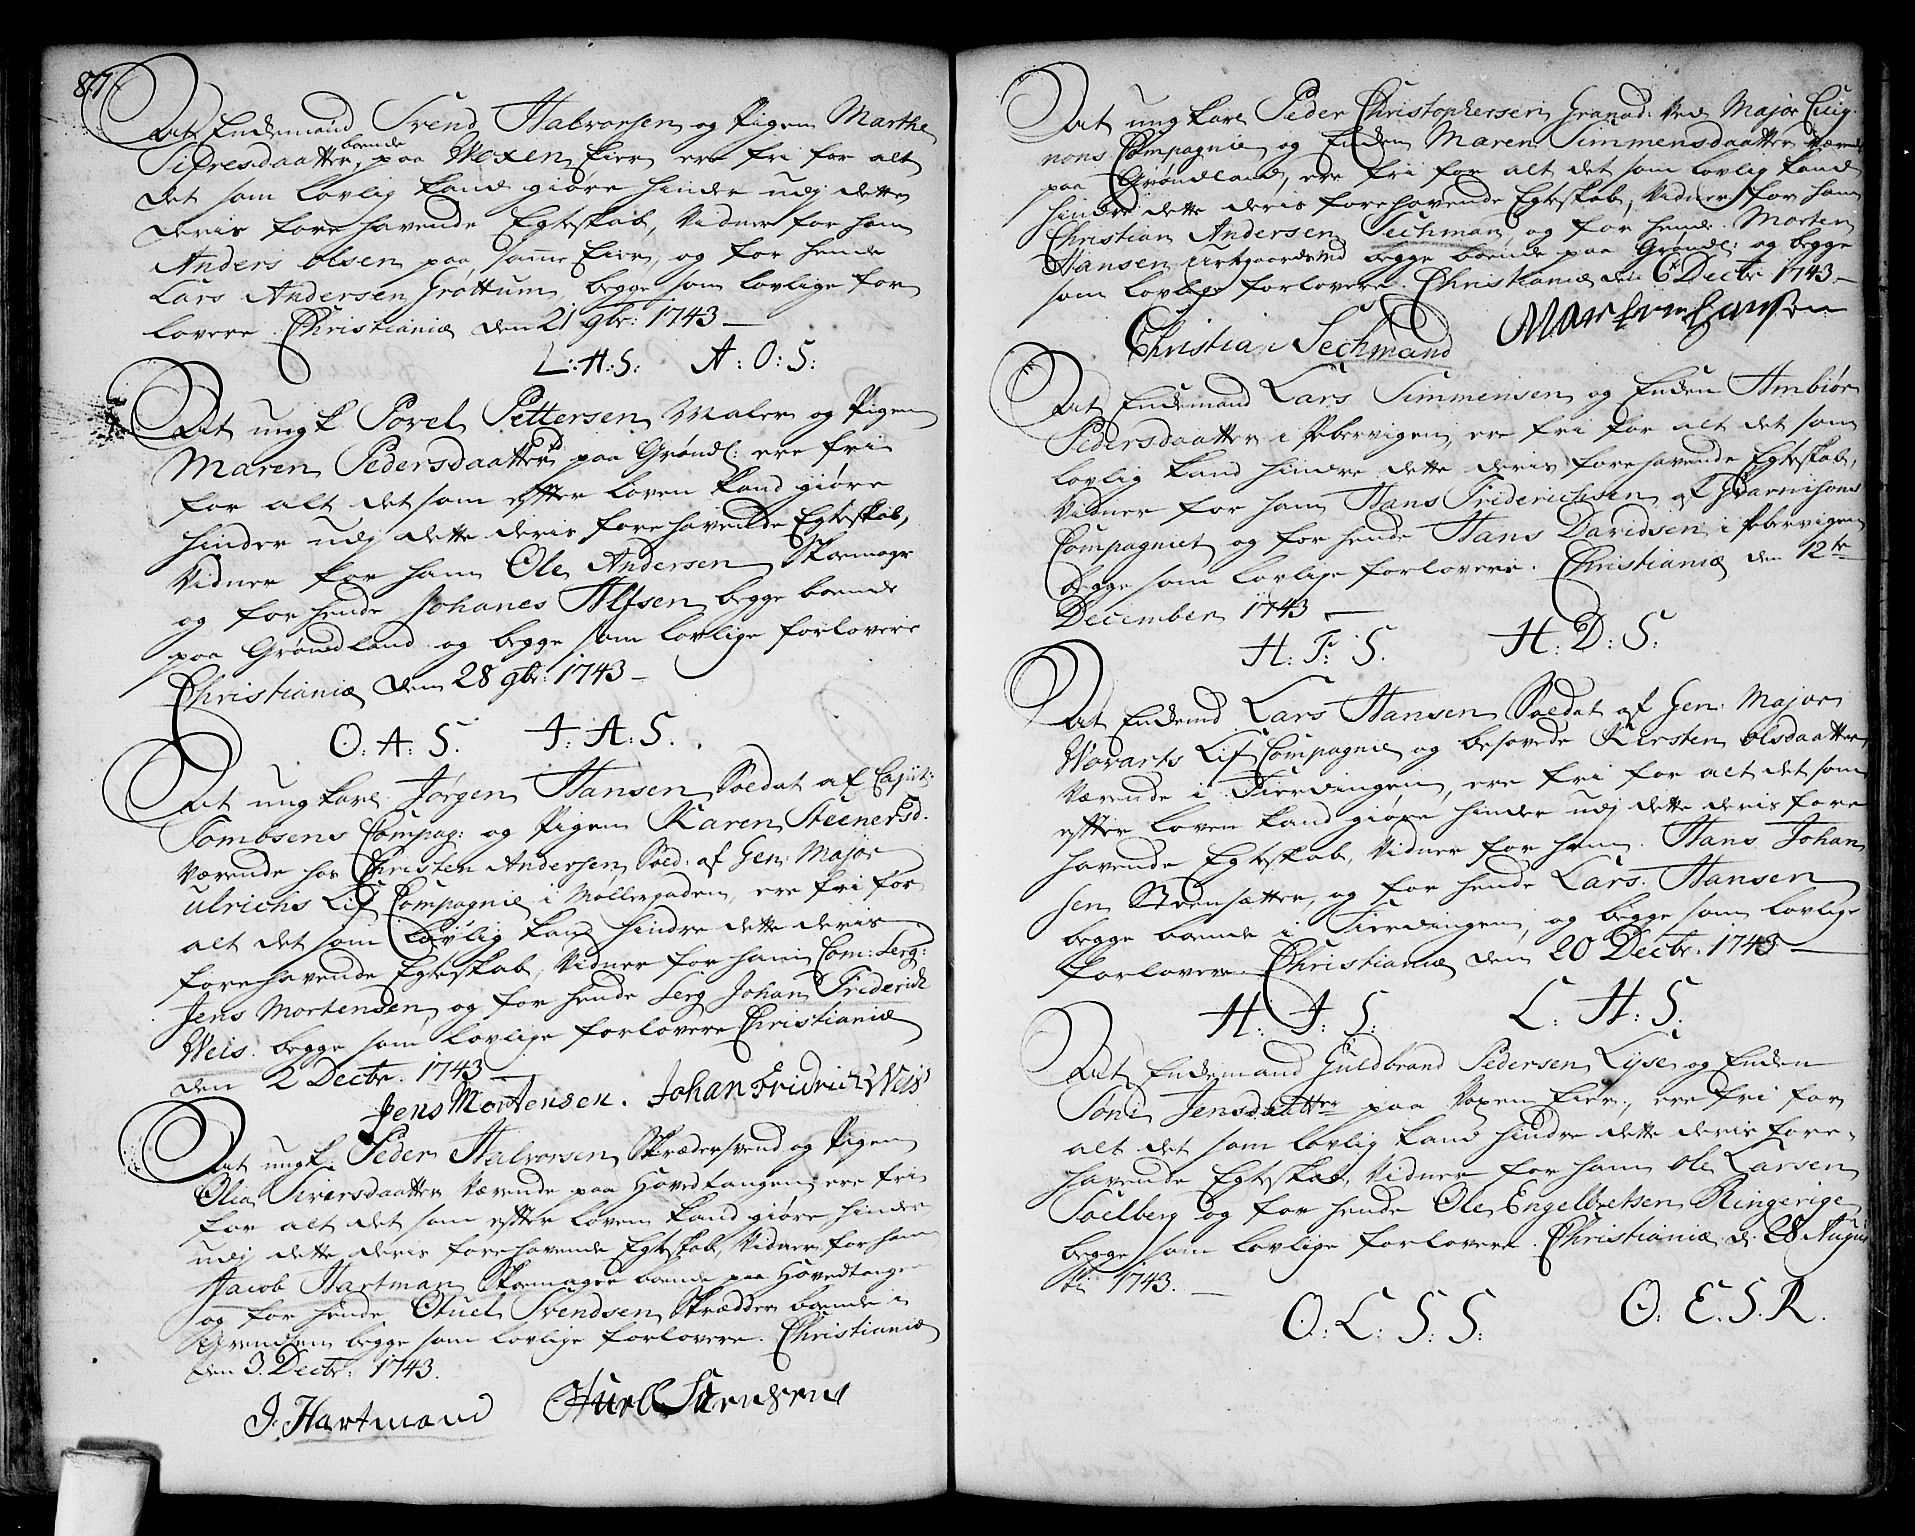 87
At Enckemand Svend Halvorsen og Pigen Marthe
Sifresdaatter boende paa Woxen Eier ere fri for alt
det som lovlig kand giøre hinder udj dette
deris forehavende Egteskab, Vidner for ham
Anders Olsen paa samme Eier, og for hende
Lars Andersen Grøttum, begge som lovlige for
lovere. Christiania den 21 9br: 1743
L: A: S: A: O: S:
At ungk Povel Pettersen Maler og Pigen
Maren Pedersdaatter paa Grøndl: ere fri
for alt det som efter loven kand giøre
hinder udj dette deris forehavende Egteskab,
Vidner for ham Ole Andersen Skoemager
og for hende Johanes Alfsen begge boende
paa Grøndland og begge som lovlige forlovere
Christiania den 28 9br: 1743
O: A: S. J: A: S.
At ung karl Jørgen Hansen Soldat af Capit:
Tombsens Compag: og Pigen Karen Steenersd.
Værende hos Christen Andersen Sold: af Gen: Major
Ulrichs Lif Compagnie i Møllergaden, ere fri for
alt det som lovlig kand hindre dette deris
forehavende Egteskab, Vidner for ham Com: Serg:
Jens Mortensen og for hende Serg Johan Friderich
Weis. begge som lovlige forlovere Christiania
den 2 Decbr. 1743
Jens Mortensen. Johan Fridrich Weis
At ungk: Peder Halvorsen Skrædersvend og Pigen
Olia Siversdaatter Værende paa Hovedtangen ere fri
for alt det som efter loven kand giøre hinder
udj dette deris forehavende Egteskab, Vidner for ham
Jacob Hartman Skoemager boende paa Hovedtangen
og for hende Otuel Svendsen Skrædder boende i
Grendsen begge som lovlige forlovere. Christiania
den 3. Decbr: 1743.
J. Hartmand Otuell Svendsen
At ung karl Peder Christophersen Granad: Ved Major Cuig
nons Compagnie og Enken Maren Simmensdaatter Værend
paa Grøndland, ere fri for alt det som lovlig kand
hindre dette deris forehavende Egteskab, Vidner for ham
Christian Andersen Sechman og for hende Morten
Hansen begge boende paa Grøndl: og begge
som lovlige forlovere. Christiania den 6 Decbr 1743
Christian Sechmand Morten Hansen
At Enckemand Lars Simmensen og Enken Ambiør
Pedersdaatter i Pebervigen, ere fri for alt det som
lovlig kand hindre dette deris forehavende Egteskab,
Vidner for ham Hans Friderichsen af Guarnisons
Compagniet og for hende Hans Davidsen i Pebervigen
begge som lovlige forlovere. Christiania den 12te
December 1743
H: F: S. H: D: S:
At Enckemd Lars Hansen Soldat af Gen: Major
Wovarts Lif Compagnie og besovede Kirsten Olsdaatter
Værende i Fierdingen, ere fri for alt det som
efter loven kand giøre hinder udj dette deris fore
havende Egteskab, Vidner for ham. Hans Johan
sen og for hende Lars Hansen
begge boende i Fierdingen, og begge som lovlige
forlovere Christiania den 20 Decbr. 1743
H: J: S: L: H: S.
At Enckemand Guldbrand Pedersen Lysse og Enken
Søni Jensdatter paa Voxen Eier, ere fri for
alt det som lovlig kand hindre dette deris fore-
havende Egteskab, Vidner for ham Ole Larsen
Soelberg og for hende Ole Engelbretsen Ringerige
begge som lovlige forlovere. Christiania d: 28 Augu
sti 1743.
O: L: S: S: O: E. S. R.